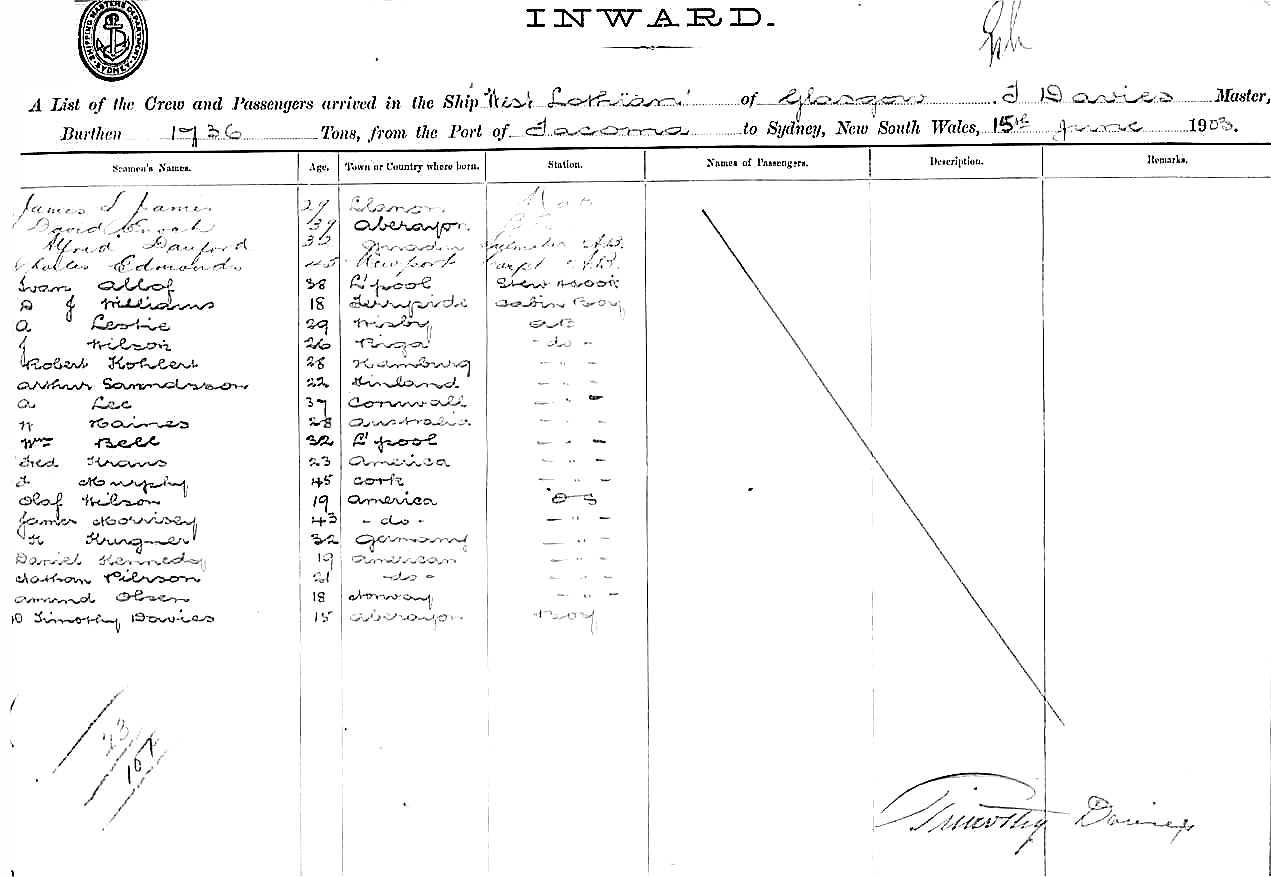 SHIPPING MASTERS DEPARTMENT SYDNEY
INWARD.
A List of the Crew and Passengers arrived in the Ship "West Lothian" of Glasgow. T Davies Master,
Burthen 1936 Tons, from the Port of Tacoma to Sydney, New South Wales, 15th June 1903.
Seamen's Names. Age. Town or Country where born. Station. Names of Passengers. Description. Remarks.
James J James 29 Llanon
David Enoch 39 Aberayon
Alfred Danford 35 Sailmaker A.B.
Charles Edmonds 45 Newport Carpt A.B.
Ivan Allof 38 L'pool Stew & Cook
D J Williams 18 Ferryside Cabin Boy
A Leslie 29 Wisby AB
J Wilson 26 Riga - do -
Robert Kohlert 28 Hamburg - " -
Arthur 22 Finland - " -
A Lee 37 Cornwall - " -
W Haines 28 Australia - " -
Wm Bell 32 L'pool - " -
Fred Krans 23 America - " -
J Murphy 45 Cork - " -
Olaf Wilson 19 America OS
James Morrisey 43 - do - - " -
K Krugmer 32 Germany - " -
Daniel Kennedy 19 American - " -
Nathan Pierson 21 - do - - " -
Amund Olsen 18 Norway - " -
D Timothy Davies 15 Aberayon Boy
23
107
Timothy Davies